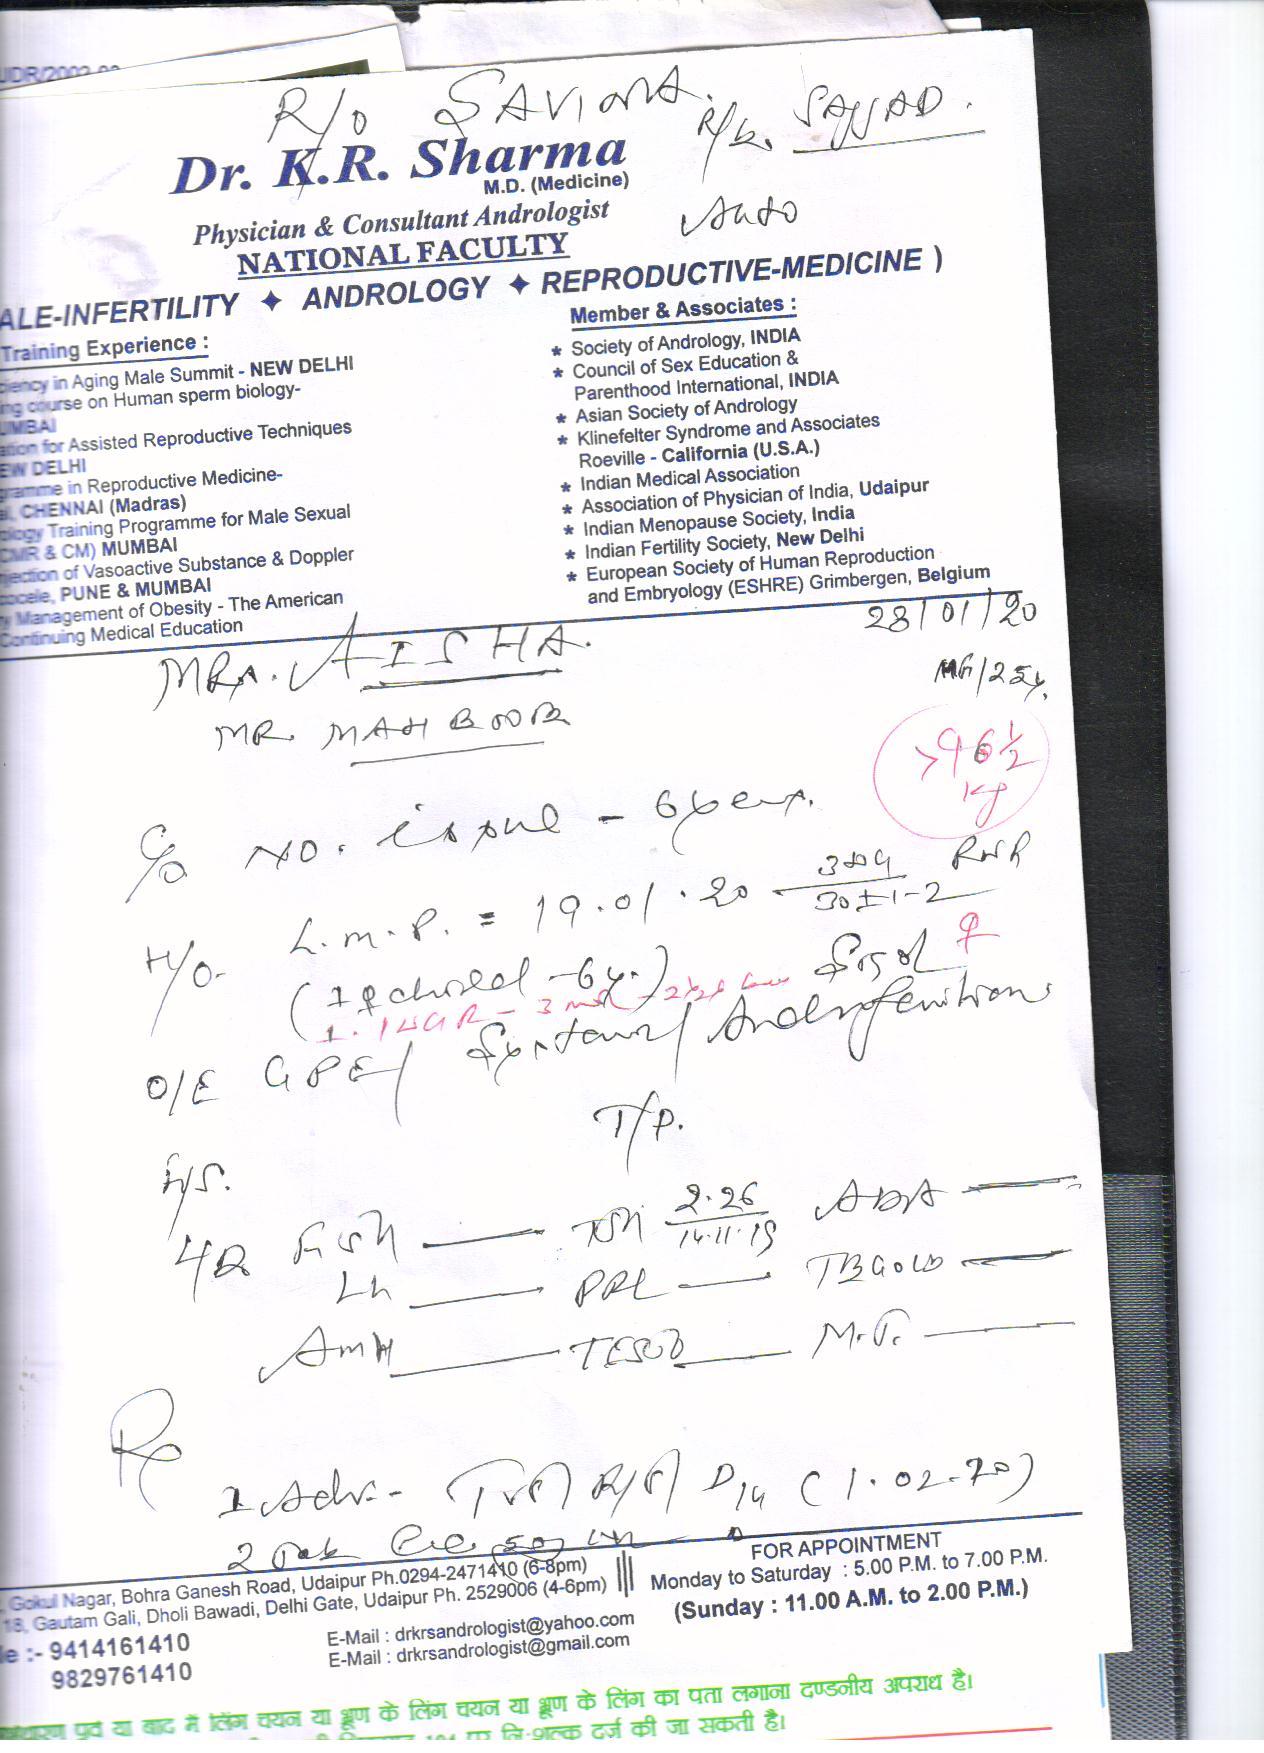 UDR/2002-03
R/o SAVINA.
R/by. SAJJAD.
Auto
Dr. K.R. Sharma
M.D. (Medicine)
Physician & Consultant Andrologist
NATIONAL FACULTY
ALE-INFERTILITY ✦ ANDROLOGY ✦ REPRODUCTIVE-MEDICINE )
Training Experience :
ciency in Aging Male Summit - NEW DELHI
ng course on Human sperm biology-
UMBAI
ation for Assisted Reproductive Techniques
EW DELHI
gramme in Reproductive Medicine-
al, CHENNAI (Madras)
ology Training Programme for Male Sexual
CMR & CM) MUMBAI
njection of Vasoactive Substance & Doppler
ocele, PUNE & MUMBAI
y Management of Obesity - The American
Continuing Medical Education
Member & Associates :
* Society of Andrology, INDIA
* Council of Sex Education &
Parenthood International, INDIA
* Asian Society of Andrology
* Klinefelter Syndrome and Associates
Roeville - California (U.S.A.)
* Indian Medical Association
* Association of Physician of India, Udaipur
* Indian Menopause Society, India
* Indian Fertility Society, New Delhi
* European Society of Human Reproduction
and Embryology (ESHRE) Grimbergen, Belgium
28/01/20
MRS. AISHA.
/25y.
MR. MAHBOOB
>96 1/2
kg
C/o NO. issue - 6 years.
H/O. L.M.P. = 19.01.20 30±1-2
O/E GPE/ Systemic/
T/P.
FSH — TSH 2.26 14.11.19 ADA —
LH — PRL — TBGOLD —
AMH — TESTO — M.T. —
Rx
1 Adv.- TVS D14 (1.02.20)
2 Tab 50
Gokul Nagar, Bohra Ganesh Road, Udaipur Ph.0294-2471410 (6-8pm)
18, Gautam Gali, Dholi Bawadi, Delhi Gate, Udaipur Ph. 2529006 (4-6pm)
le :- 9414161410
9829761410
E-Mail : drkrsandrologist@yahoo.com
E-Mail : drkrsandrologist@gmail.com
FOR APPOINTMENT
Monday to Saturday : 5.00 P.M. to 7.00 P.M.
(Sunday : 11.00 A.M. to 2.00 P.M.)
पूर्व या बाद में लिंग चयन या भ्रूण के लिंग चयन या भ्रूण के लिंग का पता लगाना दण्डनीय अपराध है।
104 पर निःशुल्क दर्ज की जा सकती है।